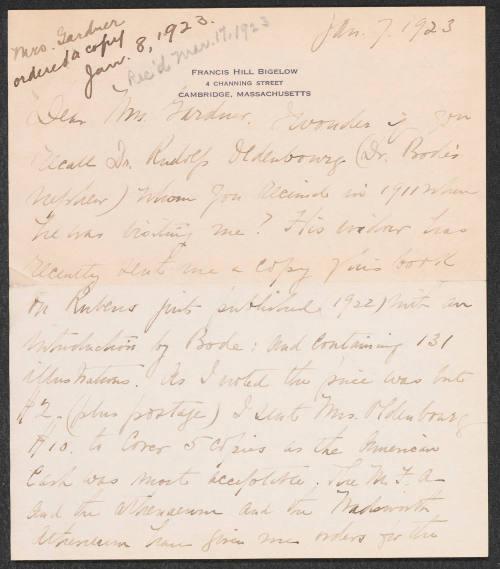 Mrs. Gardner
ordered a copy
Jan. 8, 1923.
Rec'd Mar. 17, 1923
Jan. 7. 1923
FRANCIS HILL BIGELOW
4 CHANNING STREET
CAMBRIDGE, MASSACHUSETTS
Dear Mrs. Gardner. I wonder if you
recall Dr. Rudolf Oldenbourg (Dr. Bode's
nephew) whom you received in 1911 when
he was visiting me? His widow has
recently sent me a copy of his book
on Rubens just published 1922) with an
introduction by Bode: and containing 131
illustrations. As I noted the price was but
$2. (plus postage) I sent Mrs. Oldenbourg
$10. to cover 5 copies as the American
Cash was most acceptible. The M. F. A
and the Athenaeum and the Wadsworth
Atheneum have given me orders for the